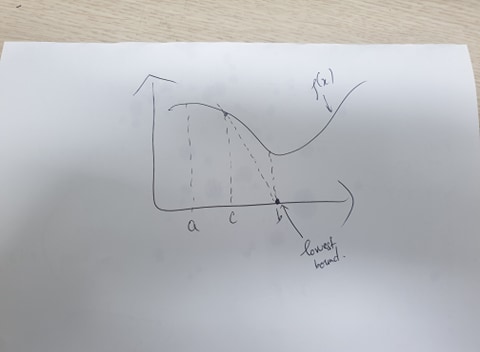 f(x)
a
c
b
lowest
bound.